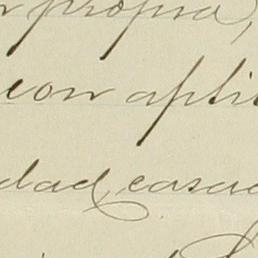 propia,
con apti
dad, casad